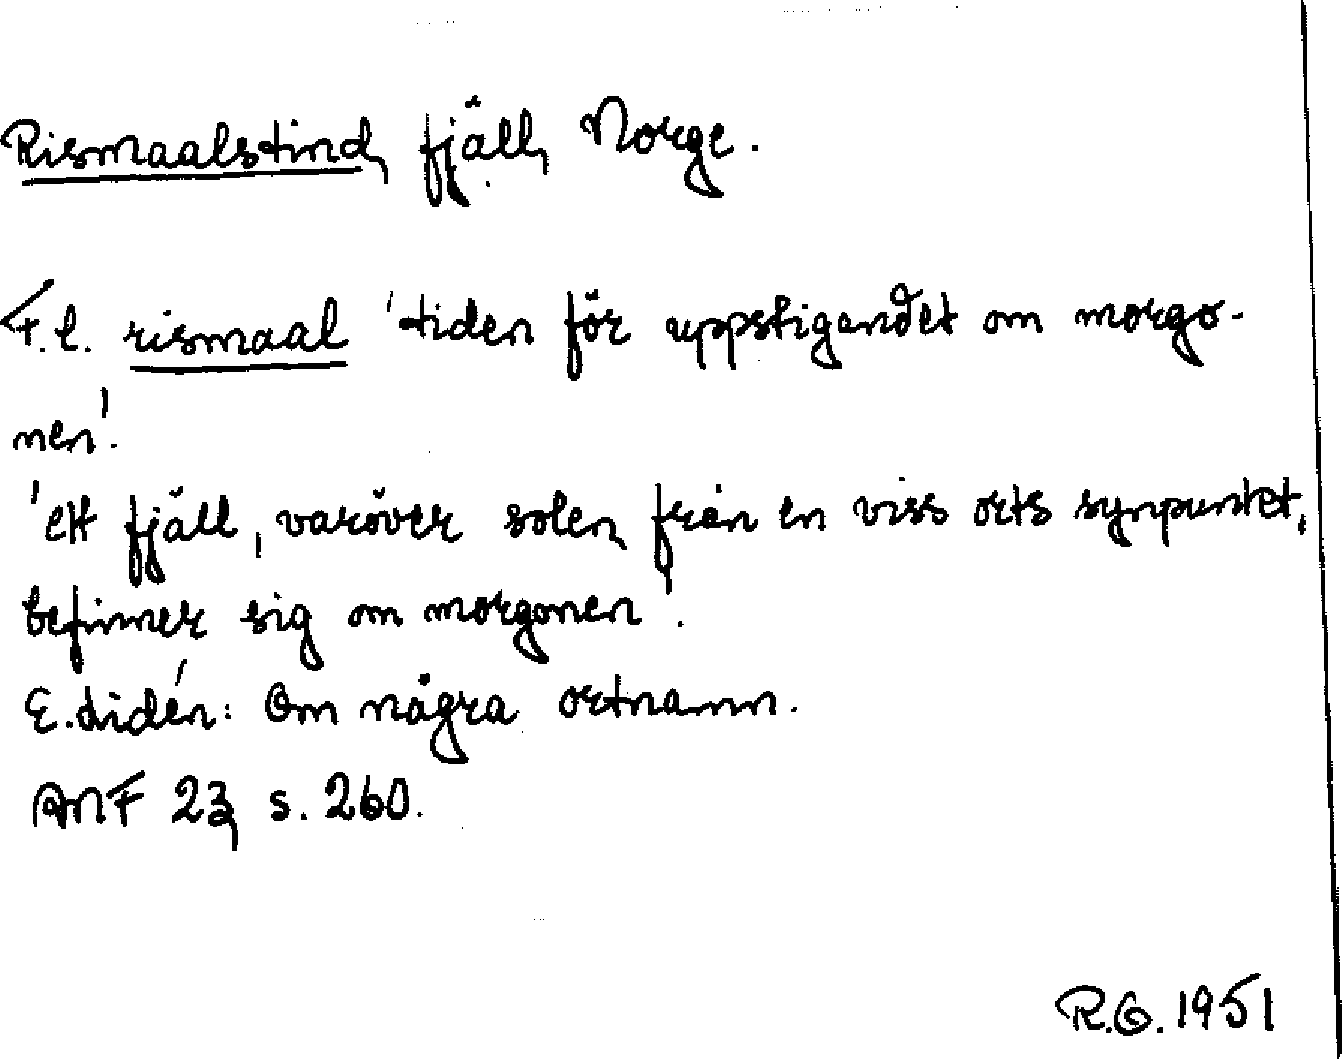 Rismaalstind, fjäll, Norge.
F.l. rismaal 'tiden för uppstigandet om morgo-
nen'.
'ett fjäll, varöver solen, från en viss orts synpunkt,
befinner sig om morgonen'.
E. Lidén: Om några ortnamn.
ANF 23, s. 260.
R.G. 1951